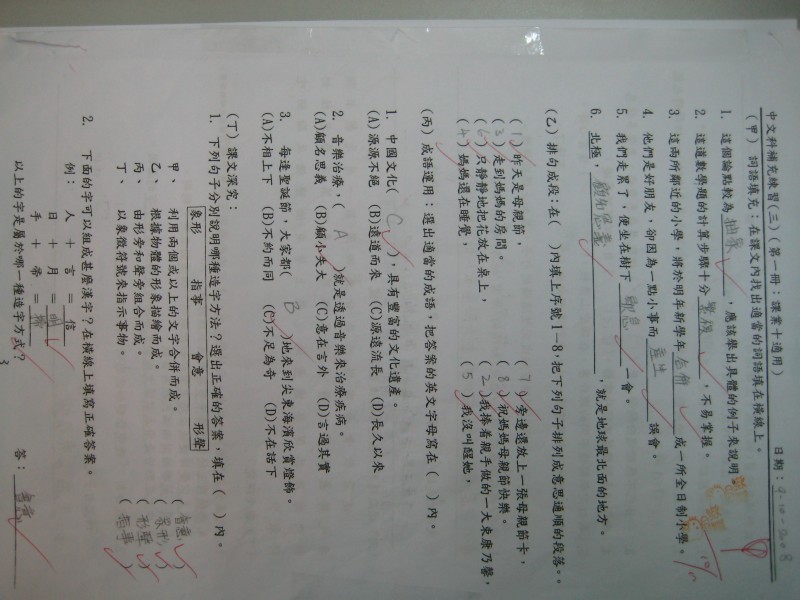 中文科補充練習(三)(第一冊:課業十適用) 日期:9-10-2008
(甲) 詞語填充:在課文內找出適當的詞語填在橫線上。
1. 這個論點較為抽象,應該舉出具體的例子來說明
2. 這道數學題的計算步驟十分繁複,不易掌握。
3. 這兩所鄰近的小學,將於明年新學年合併成一所全日制小學。
4. 他們是好朋友,卻因為一點小事而產生誤會。
5. 我們走累了,便坐在樹下歇息一會。
6. 北極,顧名思義,就是地球最北面的地方。
(乙) 排句成段:在( )內填上序號1-8,把下列句子排列成意思通順的段落。
(1)昨天是母親節, (7)旁邊還放上一張母親節卡,
(3)走到媽媽的房間。 (8)祝媽媽母親節快樂。
(6)只靜靜地把花放在桌上, (2)我捧着親手做的一大束康乃馨,
(4)媽媽還在睡覺, (5)我沒叫醒她,
(丙) 成語運用:選出適當的成語,把答案的英文字母寫在( )內。
1. 中國文化(C),具有豐富的文化遺產。
(A)源源不絕 (B)遠道而來 (C)源遠流長 (D)長久以來
2. 音樂治療,(A)就是透過音樂來治療疾病。
(A)顧名思義 (B)顧小失大 (C)意在言外 (D)言過其實
3. 每逢聖誕節,大家都(B)地來到尖東海濱欣賞燈飾。
(A)不相上下 (B)不約而同 (C)不足為奇 (D)不在話下
(丁) 課文深究:
1. 下列句子分別說明哪種造字方法?選出正確的答案,填在( )內。
象形 指事 會意 形聲
甲、 利用兩個或以上的文字合併而成。 (會意)
乙、 根據物體的形象描繪而成。 (象形)
丙、 由形旁和聲旁組合而成。 (形聲)
丁、 以象徵符號來指示事物。 (指事)
2. 下面的字可以組成甚麼漢字?在橫線上填寫正確答案。
例: 人 + 言 = 信
日 + 月 = 明
手 + 帚 = 掃
以上的字是屬於哪一種造字方式? 答:會意